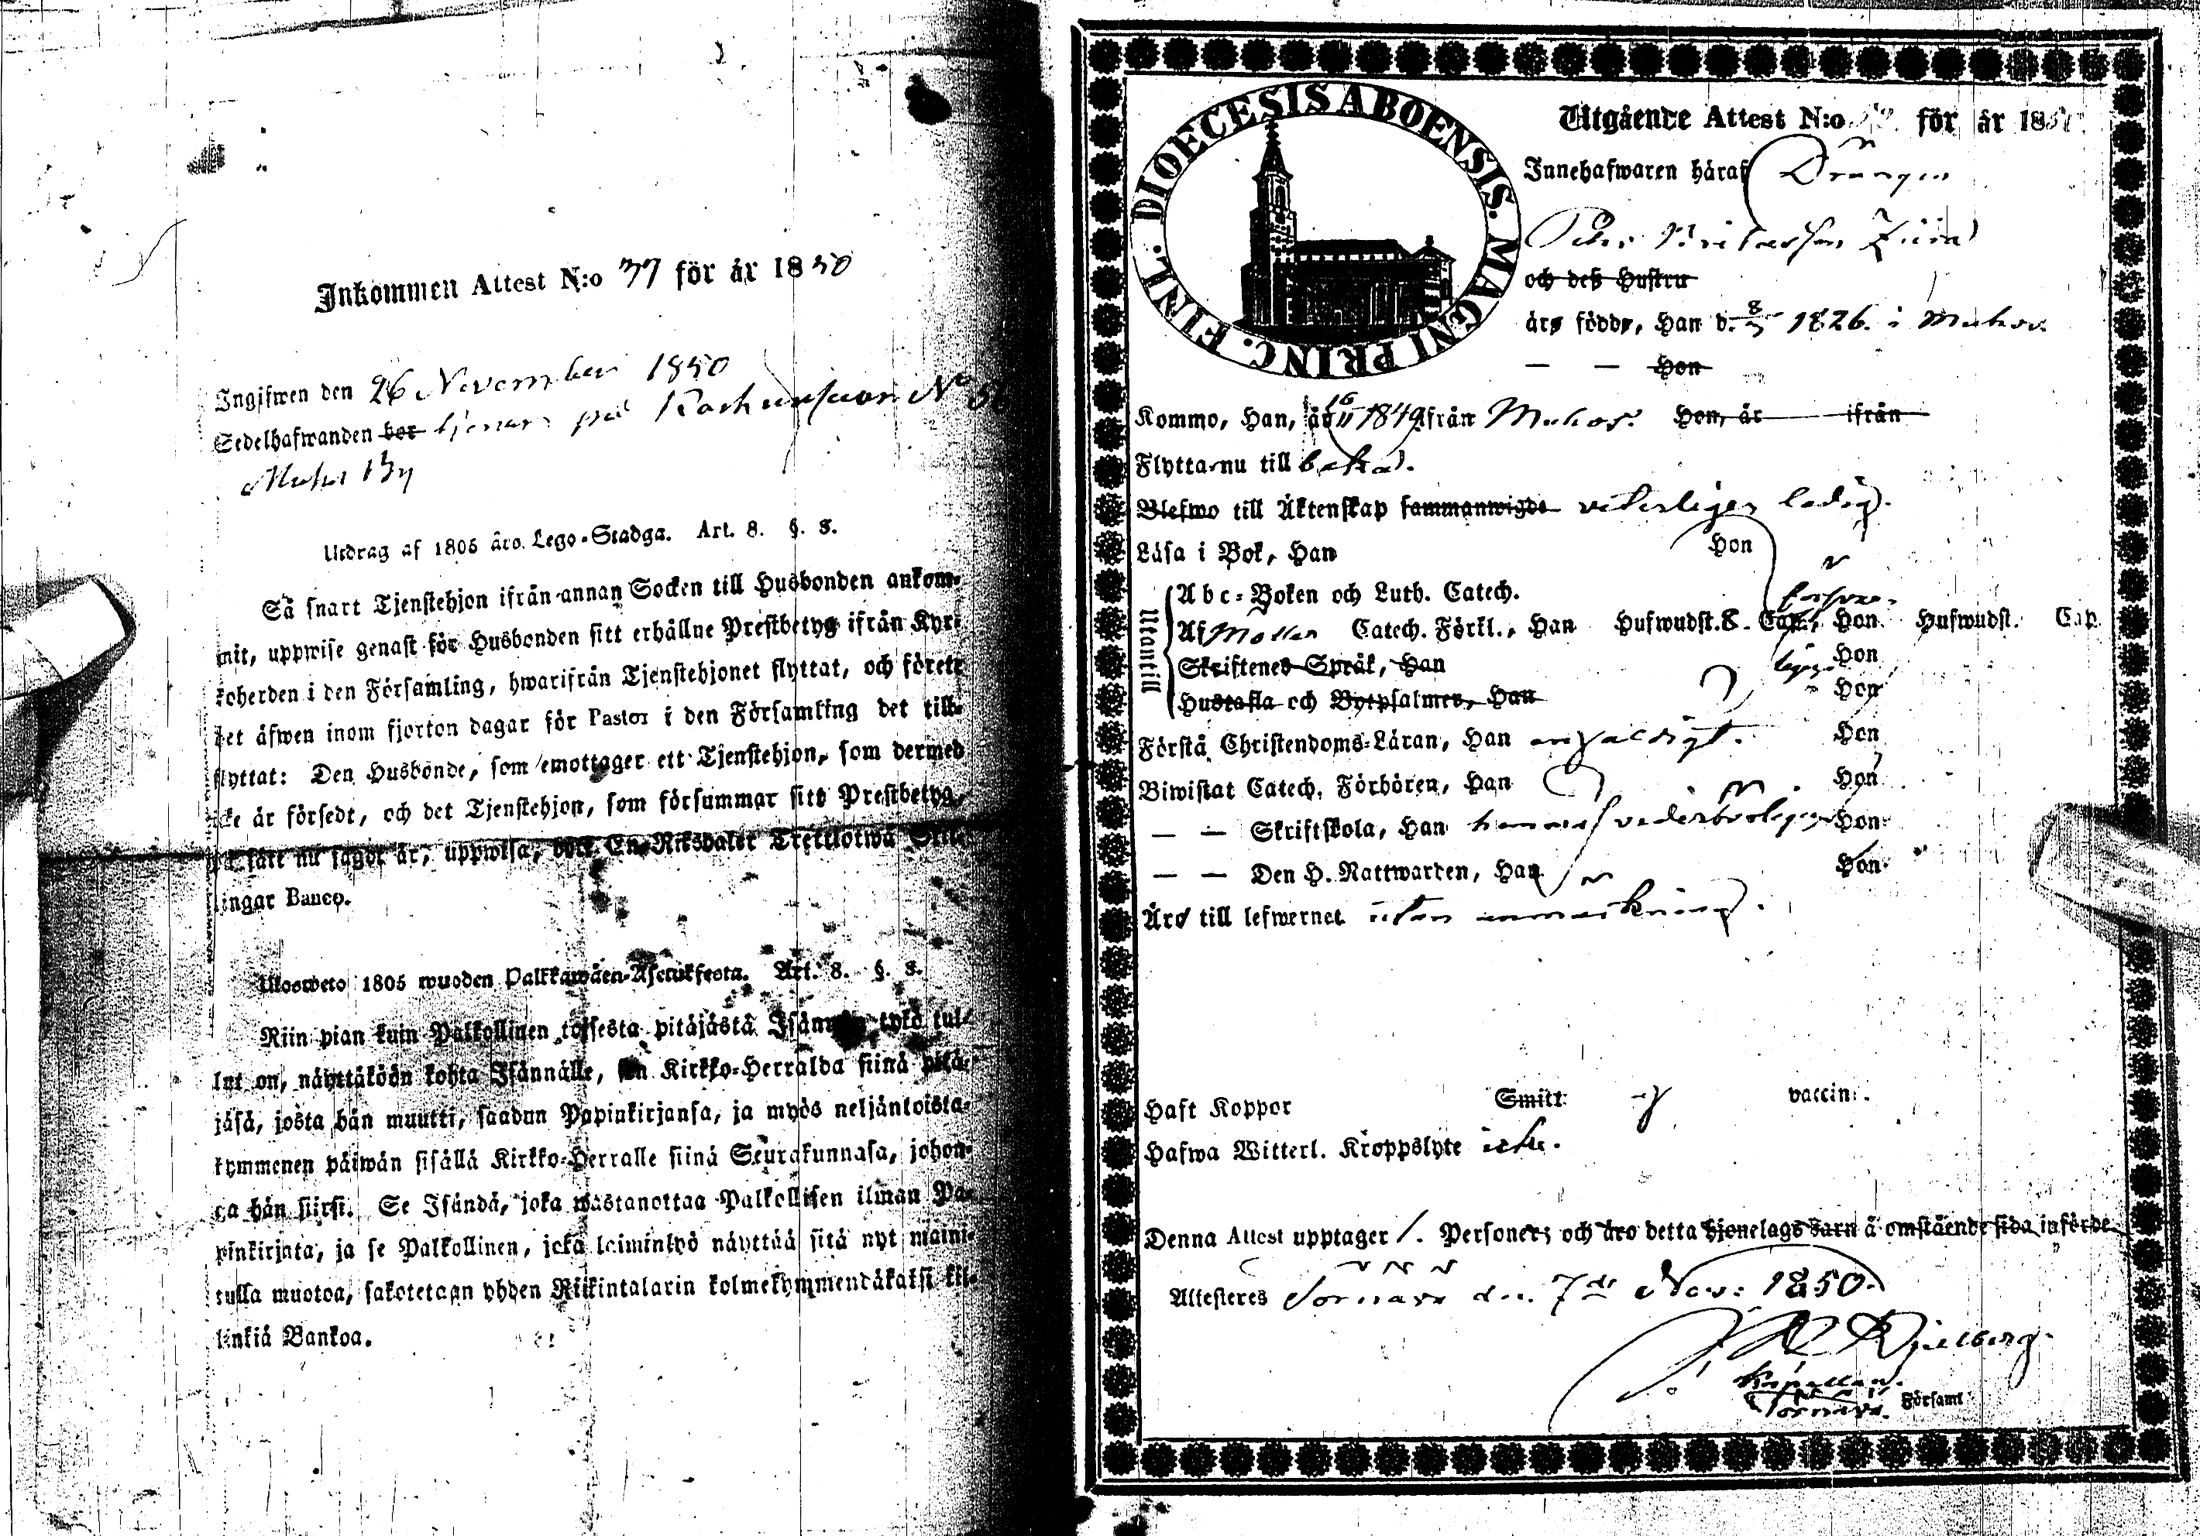 Inkommen Attest N:o 37 för år 1850
Ingifwen den 26 November 1850
Sedelhafwanden bor tjenar på N:o
Muhos By
Utdrag af 1805 års Lego-Stadga. Art. 8. §. 3.
Så snart Tjenstehjon ifrån annan Socken till Husbonden ankom-
mit, uppwise genast för Husbonden sitt erhållne Prestbetyg ifrån Kyr-
koherden i den Församling, hwarifrån Tjenstehjonet flyttat, och förete
det äfwen inom fjorton dagar för Pastor i den Församling det till-
flyttat: Den Husbonde, som emottager ett Tjenstehjon, som dermed
icke är försedt, och det Tjenstehjon, som försummar sitt Prestbetyg,
på sätt nu sagdt är, uppwisa, böte En Riksdaler Trettiotwå Skil-
lingar Banco.
Ulosweto 1805 wuoden Palkkawäen-Asetuksesta. Art. 8. §. 3.
Niin pian kuin Palkollinen toisesta pitäjästä Isännän tykö tul-
lut on, näyttäköön kohta Isännälle, sen Kirkko-Herralda siinä pitä-
jäsä, josta hän muutti, saadun Papinkirjansa, ja myös neljäntoista-
kymmenen päiwän sisällä Kirkko-Herralle siinä Seurakunnasa, johon-
ga hän siirsi. Se Isändä, joka wastanottaa Palkollisen ilman Pa-
pinkirjata, ja se Palkollinen, joka laiminlyö näyttää sitä nyt maini-
tulla muotoa, sakotetaan yhden Riikintalarin kolmekymmendäkaksi kil-
linkiä Bankoa.
DIOECESIS ABOENSIS. MAGNI PRINC. FINL.
Utgående Attest N:o för år 18
Innehafwaren häraf Drängen
Petter
och deß Hustru
äro födde, Han d. 8/3 1826. i Muhos.
— — Hon
Kommo, Han, år 16/11 1849 ifrån Muhos. Hon, år ifrån
Flytta nu till baka.
Blefwo till Äktenskap sammanwigde veterligen ledig.
Läsa i Bok, Han Hon
Utantill
Abc-Boken och Luth. Catech. försvar-
Af Möllers Catech. Förkl., Han Hufwudst. 8. Cap., Hon Hufwudst. Cap.
Skriftenes Språk, Han ligen Hon
Hustafla och Botpsalmer, Han Hon
Förstå Christendoms-Läran, Han enfaldigt. Hon
Biwistat Catech. Förhören, Han Hon
— — Skriftskola, Han hannes vederbörligen Hon
— — Den H. Nattwarden, Han Hon
Äro till lefwernet utan anmärkning.
Haft Koppor Smitt vaccin.
Hafwa Witterl. Kroppslyte icke.
Denna Attest upptager 1. Personer; och äro detta hjonelags barn å omstående sida införde.
Attesteres Sornäs den 7de Nov: 1850.
Kapellan.
Församl